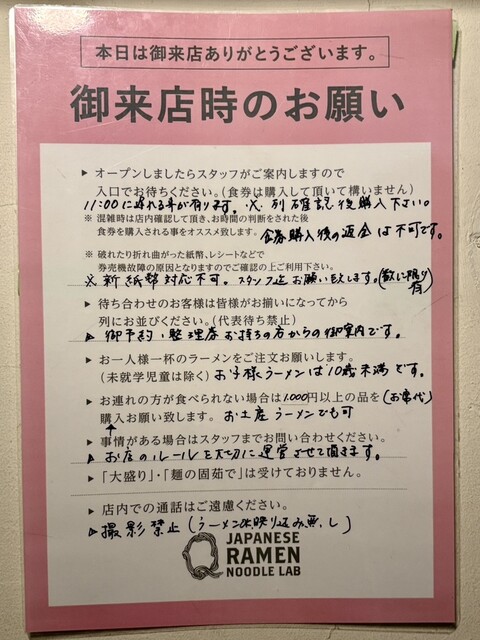 本日は御来店ありがとうございます。
御来店時のお願い
▶ オープンしましたらスタッフがご案内しますので
入口でお待ちください。(食券は購入して頂いて構いません)
11:00に遅れる事が有ります。※列確認後購入下さい。
※ 混雑時は店内確認して頂き、お時間の判断をされた後
食券を購入される事をオススメ致します。 食券購入後の返金は不可です。
※ 破れたり折れ曲がった紙幣、レシートなどで
券売機故障の原因となりますのでご確認の上ご利用下さい。
※新紙幣対応不可。スタッフ迄お願い致します。(数に限り有)
▶ 待ち合わせのお客様は皆様がお揃いになってから
列にお並びください。(代表待ち禁止)
▶ 御予約・整理券お持ちの方からの御案内です。
▶ お一人様一杯のラーメンをご注文お願いします。
(未就学児童は除く) お子様ラーメンは10歳未満です。
▶ お連れの方が食べられない場合は1.000円以上の品を(お席代)
購入お願い致します。 お土産ラーメンでも可
▶ 事情がある場合はスタッフまでお問い合わせください。
▶ お店のルールを大切に運営させて頂きます。
▶ 「大盛り」・「麺の固茹で」は受けておりません。
▶ 店内での通話はご遠慮ください。
▶ 撮影禁止(ラーメンOK映り込み無し)
JAPANESE
RAMEN
NOODLE LAB